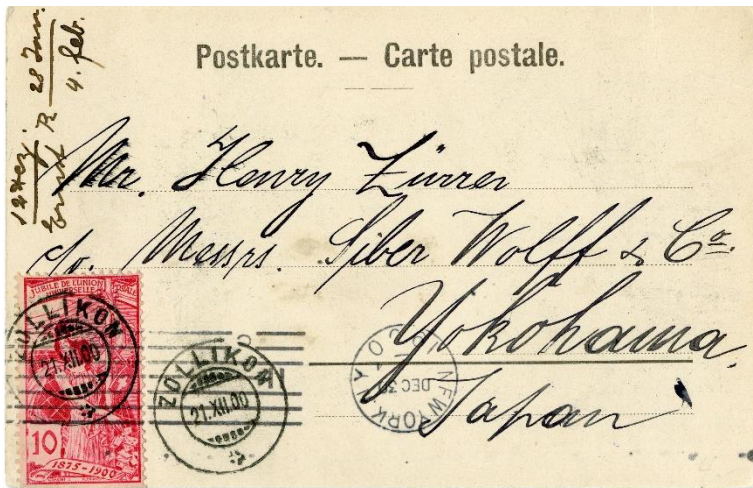 12 Dez. 28 Jan.
Ernst R 4. Feb.
Postkarte. — Carte postale.
Mr. Henry Zürrer
c/o. Messrs. Siber Wolff & Co.
Yokohama,
Japan
JUBILÉ DE L'UNION
UNIVERSELLE
10
1875-1900
ZOLLIKON
21.XII.00
ZOLLIKON
21.XII.00
NEW YORK NY
DEC 30